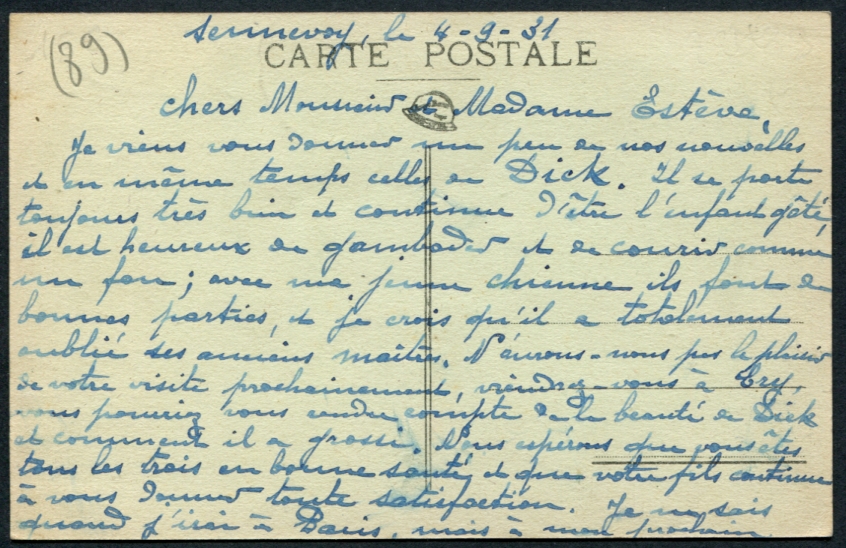 (89)
Sennevoy, le 4-9-31
CARTE POSTALE
chers Monsieur et Madame Estève,
Je viens vous donner un peu de nos nouvelles
et en même temps celles de Dick. Il se porte
toujours très bien et continue d'être l'enfant gâté,
il est heureux de gambader et de courir comme
un fou ; avec ma jeune chienne ils font de
bonnes parties, et je crois qu'il a totalement
oublié ses anciens maîtres. N'aurons-nous pas le plaisir
de votre visite prochainement, viendrez-vous à Cry,
vous pourriez vous rendre compte de la beauté de Dick
et comment il a grossi. Nous espérons que vous êtes
tous les trois en bonne santé, et que votre fils continue
à vous donner toute satisfaction. Je ne sais
quand j'irai à Paris, mais à mon prochain